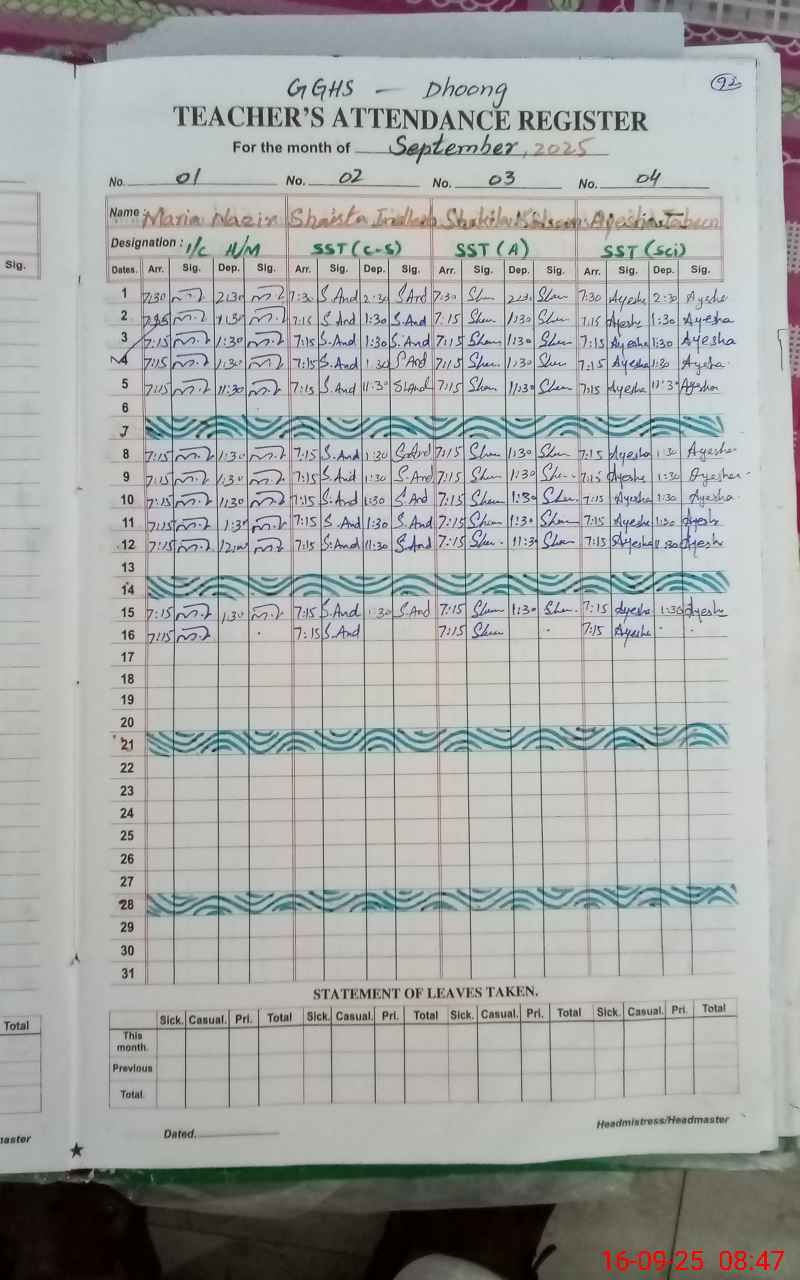 92
GGHS — Dhoong
TEACHER'S ATTENDANCE REGISTER
For the month of September, 2025
No. 01 No. 02 No. 03 No. 04
Name: Maria Nazir Shaista Shakila Ayesha
Designation: I/c H/M SST (C-S) SST (A) SST (Sci)
Sig. Dates. Arr. Sig. Dep. Sig. Arr. Sig. Dep. Sig. Arr. Sig. Dep. Sig. Arr. Sig. Dep. Sig.
1 7:30 2:30 7:30 S.And 2:30 S.And 7:30 Sham 2:30 Sham 7:30 Ayesha 2:30 Ayesha
2 1:30 7:15 S.And 1:30 S.And 7:15 Sham 1:30 Sham 7:15 Ayesha 1:30 Ayesha
3 7:15 1:30 7:15 S.And 1:30 S.And 7:15 Sham 1:30 Sham 7:15 Ayesha 1:30 Ayesha
4 7:15 1:30 7:15 S.And 1:30 S.And 7:15 Sham 1:30 Sham 7:15 Ayesha 1:30 Ayesha
5 7:15 11:30 7:15 S.And 11:30 S.And 7:15 Sham 11:30 Sham 7:15 Ayesha 11:30 Ayesha
6
7
8 7:15 1:30 7:15 S.And 1:30 S.And 7:15 Sham 1:30 Sham 7:15 Ayesha 1:30 Ayesha
9 7:15 1:30 7:15 S.And 1:30 S.And 7:15 Sham 1:30 7:15 Ayesha 1:30 Ayesha
10 7:15 1:30 7:15 S.And 1:30 S.And 7:15 Sham 1:30 Sham 7:15 Ayesha 1:30 Ayesha
11 7:15 1:30 7:15 S.And 1:30 S.And 7:15 Sham 1:30 Sham 7:15 Ayesha 1:30 Ayesha
12 7:15 7:15 S.And 11:30 S.And 7:15 Sham 11:30 Sham 7:15 Ayesha 11:30 Ayesha
13
14
15 7:15 1:30 7:15 S.And 1:30 S.And 7:15 Sham 1:30 Sham 7:15 Ayesha 1:30 Ayesha
16 7:15 7:15 S.And 7:15 Sham 7:15 Ayesha
17
18
19
20
21
22
23
24
25
26
27
28
29
30
31
STATEMENT OF LEAVES TAKEN.
Total Sick. Casual. Pri. Total Sick. Casual. Pri. Total Sick. Casual. Pri. Total Sick. Casual. Pri. Total
This month.
Previous
Total.
Dated. Headmistress/Headmaster
master
16-09-25 08:47